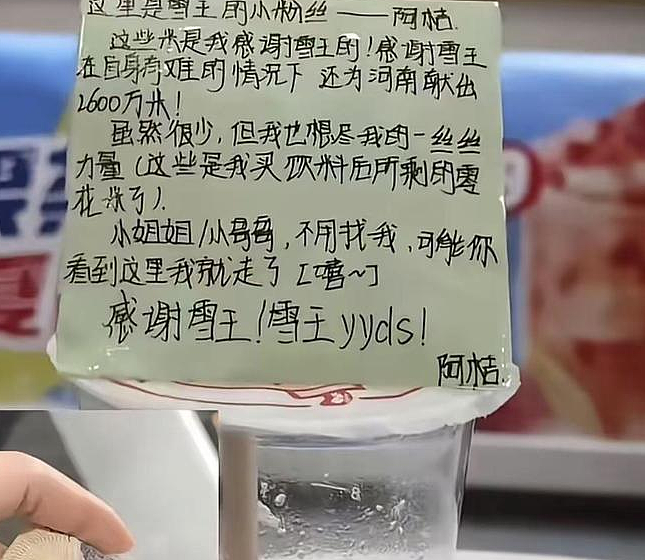 这里是雪王的小粉丝——阿桔.
这些米是我感谢雪王的!感谢雪王
在自身有难的情况下 还为河南献出
2600万米!
虽然很少,但我也想尽我的一丝丝
力量(这些是我买饮料后所剩的零
花米了).
小姐姐/小哥哥,不用找我,可能你
看到这里我就走了[嘻~]
感谢雪王!雪王yyds!
阿桔.